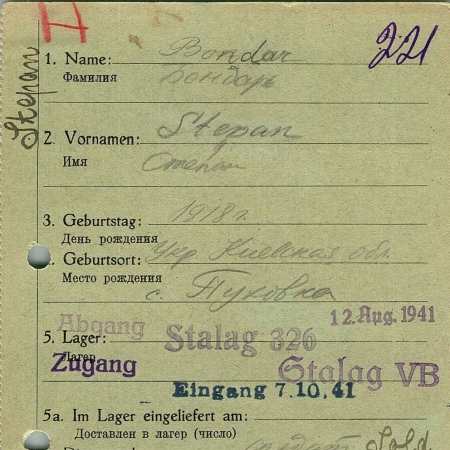 H
221
Stepan
1. Name: Bondar
Фамилия Бондарь
2. Vornamen: Stepan
Имя Степан
3. Geburtstag: 1918 г.
День рождения
4. Geburtsort: Укр Киевская обл.
Место рождения с. Пуховка
Abgang Stalag 326 12. Aug. 1941
5. Lager:
Лагер
Zugang Stalag VB
Eingang 7.10.41
5a. Im Lager eingeliefert am:
Доставлен в лагер (число)
солдат Sold